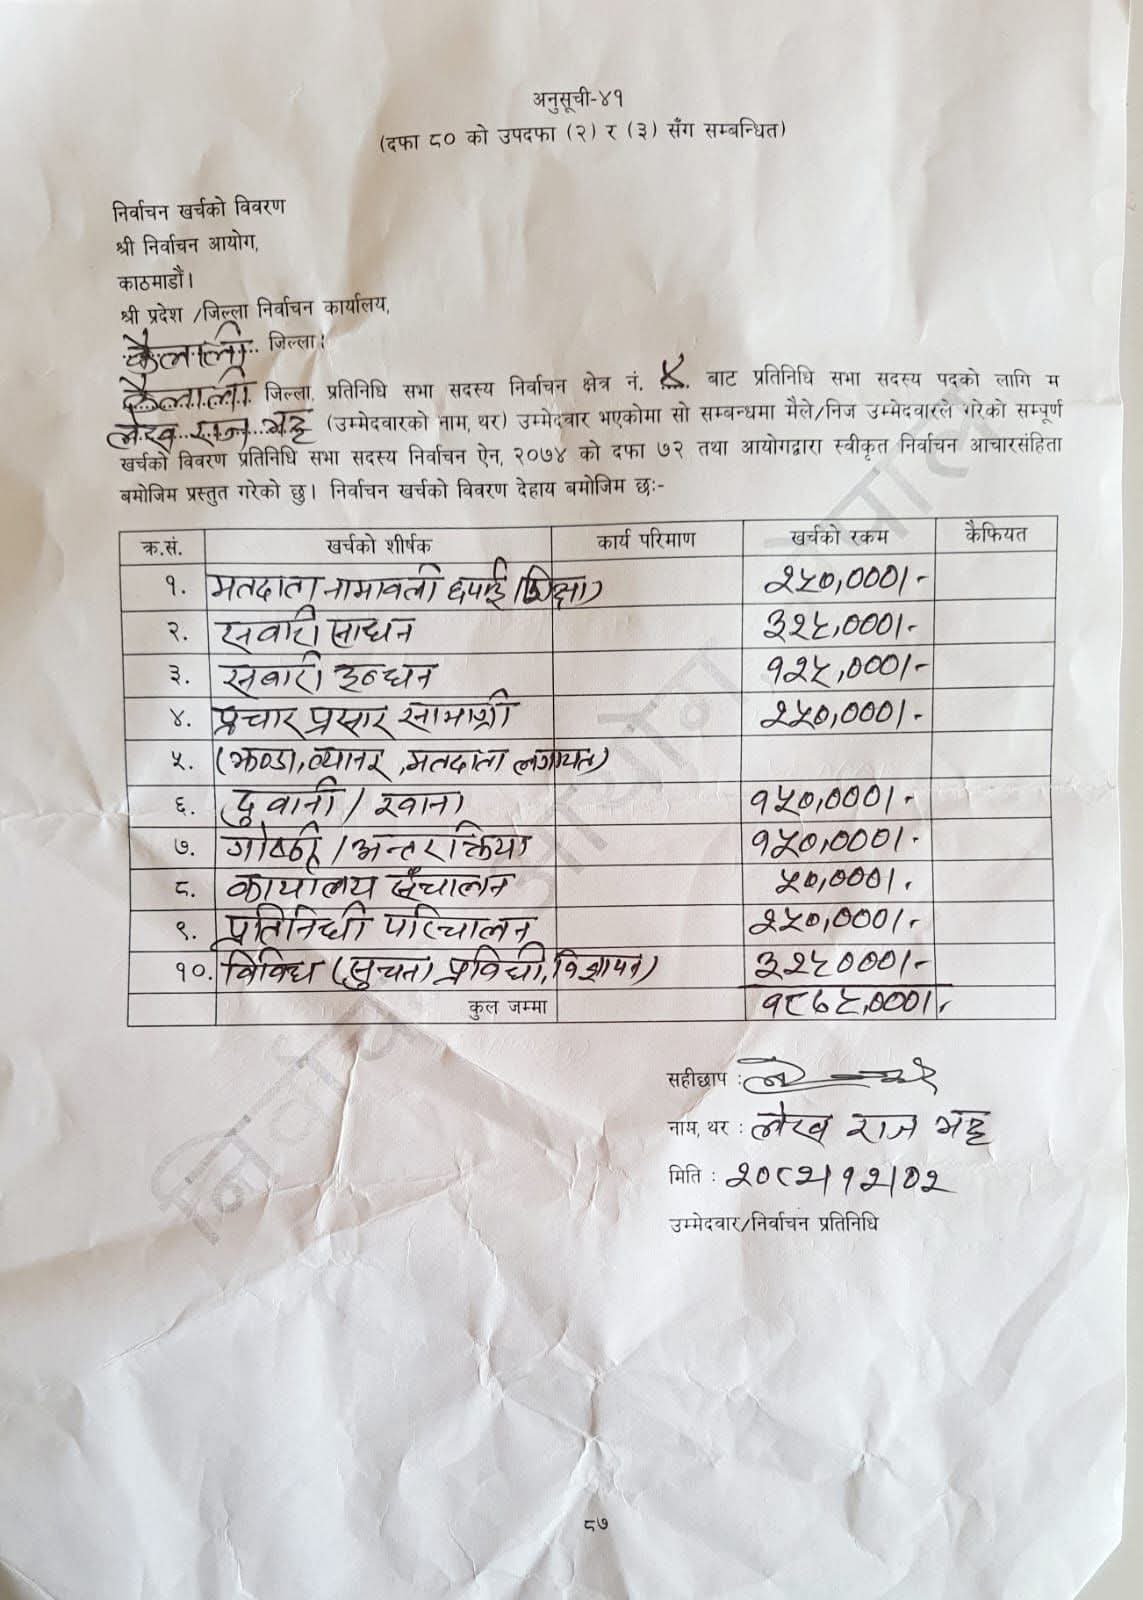 अनुसूची-४१
(दफा ८० को उपदफा (२) र (३) सँग सम्बन्धित)
निर्वाचन खर्चको विवरण
श्री निर्वाचन आयोग,
काठमाडौं।
श्री प्रदेश /जिल्ला निर्वाचन कार्यालय,
कैलाली जिल्ला।
कैलाली जिल्ला, प्रतिनिधि सभा सदस्य निर्वाचन क्षेत्र नं. ४ बाट प्रतिनिधि सभा सदस्य पदको लागि म
लेख राज भट्ट (उम्मेदवारको नाम, थर) उम्मेदवार भएकोमा सो सम्बन्धमा मैले/निज उम्मेदवारले गरेको सम्पूर्ण
खर्चको विवरण प्रतिनिधि सभा सदस्य निर्वाचन ऐन, २०७४ को दफा ७२ तथा आयोगद्वारा स्वीकृत निर्वाचन आचारसंहिता
बमोजिम प्रस्तुत गरेको छु। निर्वाचन खर्चको विवरण देहाय बमोजिम छः-
क्र.सं. खर्चको शीर्षक कार्य परिमाण खर्चको रकम कैफियत
१. मतदाता नामावली छपाई (शिक्षा) २५०,०००/-
२. सवारी साधन ३२५,०००/-
३. सवारी इन्धन १२५,०००/-
४. प्रचार प्रसार सामाग्री २५०,०००/-
५. (झण्डा, व्यानर, मतदाता लगायत)
६. ढुवानी / रवाना १५०,०००/-
७. गोष्ठी / अन्तरक्रिया १५०,०००/-
८. कार्यालय सँचालन ५०,०००/-
९. प्रतिनिधी परिचालन २५०,०००/-
१०. विविध (सुचना प्रविधी, विज्ञापन) ३२५०००/-
कुल जम्मा १८७५,०००/-
सहीछाप :
नाम, थर : लेख राज भट्ट
मिति : २०८२/१२/०२
उम्मेदवार/निर्वाचन प्रतिनिधि
८७
निर्वाचन आयोग, नेपाल